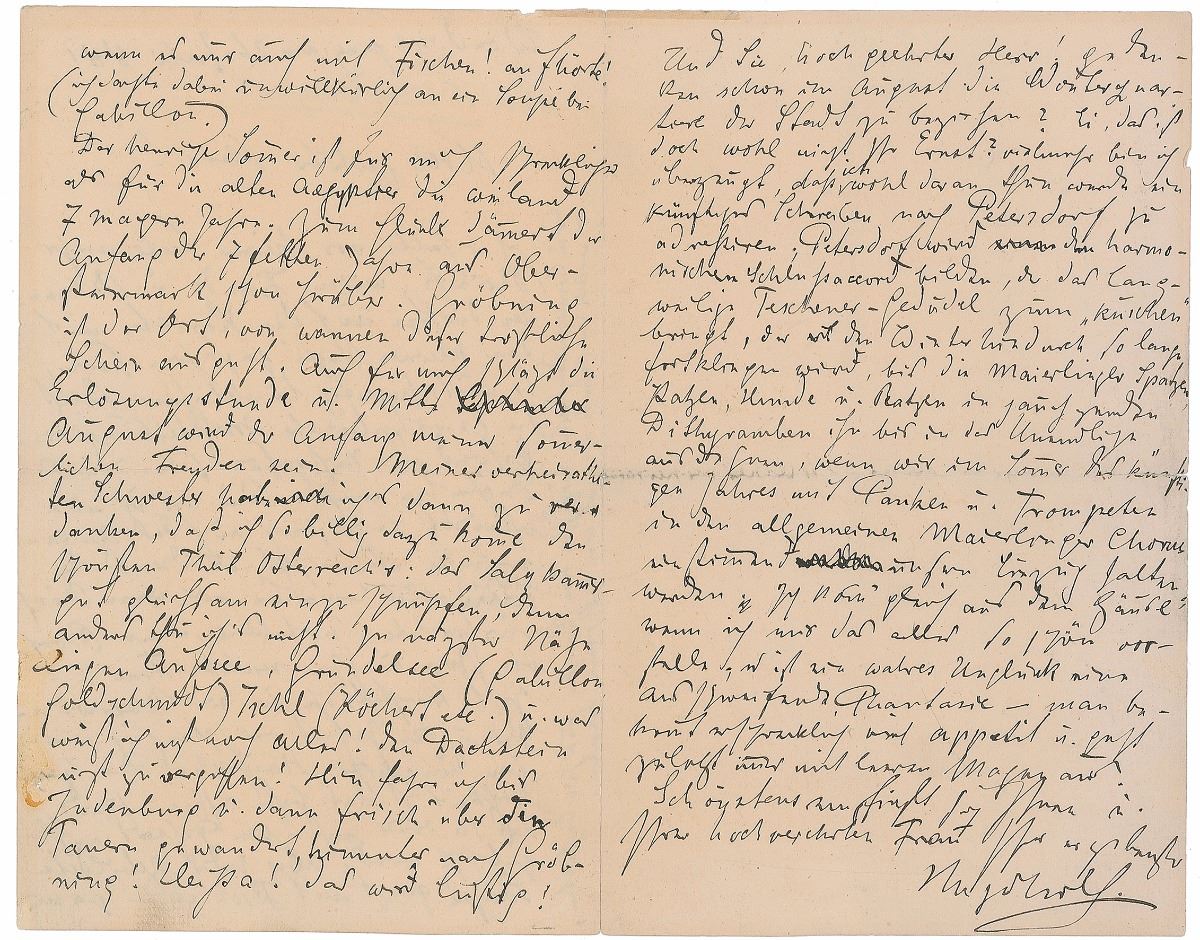 wenn es nur auch mit Fischen! aufhörte!
(ich dachte dabei unwillkürlich an ein Soupé bei
Gabillon.)
Der heurige Somer ist für mich schrecklicher
als für die alten Aegypter die weiland
7 magern Jahre. Zum Glück dämert der
Anfang der 7 fetten Jahre aus Ober-
steiermark schon herüber. Gröbming
ist der Ort, von wannen dieser tröstliche
Schein ausgeht. Auch für mich schlägt die
Erlösungsstunde u. Mitte
August wird der Anfang meiner somer-
lichen Freuden sein. Meiner verheirathe-
ten Schwester hab ich's dann zu ver-
danken, daß ich so billig dazu kome den
schönsten Theil Österreich's: das Salzkamer-
gut gleichsam einzuschnupfen, denn
anders thu ich's nicht. In nächster Nähe
liegen Aussee, Grundelsee (Gabillon
Goldschmidt) Ischl (Köchert etc.) u. was
weiß ich nicht noch alles! den Dachstein
nicht zu vergessen! Hin fahre ich bis
Judenburg u. dann frisch über die
Tauern gewandert, hinunter nach Gröb-
ming! Heißa! das wird lustig!
Und Sie, hoch geehrter Herr! geden-
ken schon im August die Winterquar-
tiere der Stadt zu beziehen? Ei, das ist
doch wohl nicht Ihr Ernst? vielmehr bin ich
überzeugt daß ich wohl daran thun werde ein
künftiges Schreiben nach Petersdorf zu
adressiren; Petersdorf wird den harmo-
nischen Schlußaccord bilden, der das lang-
weilige Teschener-Gedudel zum „kuschen"
bringt, der den Winter hindurch so lange
fortklingen wird, bis die Maierlinger Spatzen,
Katzen, Hunde u. Ratzen in jauchzenden
Dithyramben ihn bis in das Unendliche
ausdehnen, wenn wir im Somer des künfti-
gen Jahres mit Pauken u. Trompeten
in den allgemeinen Maierlinger Chorus
einstimend unsern Einzug halten
werden. Ich kom' gleich aus dem Häusl'
wenn ich mir das alles so schön vor-
stelle; es ist ein wahres Unglück eine
ausschweifende Phantasie – man be-
komt erschrecklich viel Appetit u. geht
zuletzt imer mit leeren Magen aus!
Schönstens empfiehlt sich Ihnen u.
Ihrer hochverehrten Frau Ihr ergebenster
Hugo Wolf.